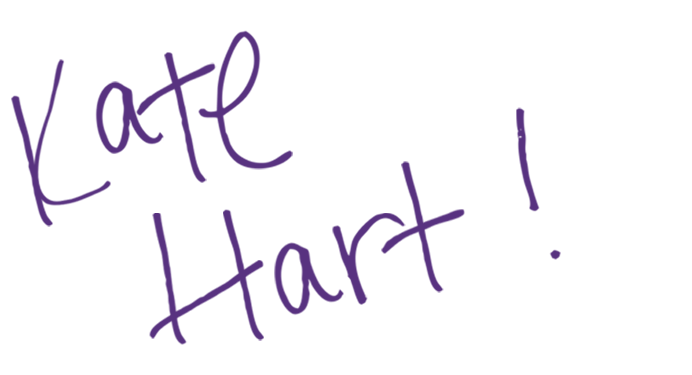 Kate
Hart!